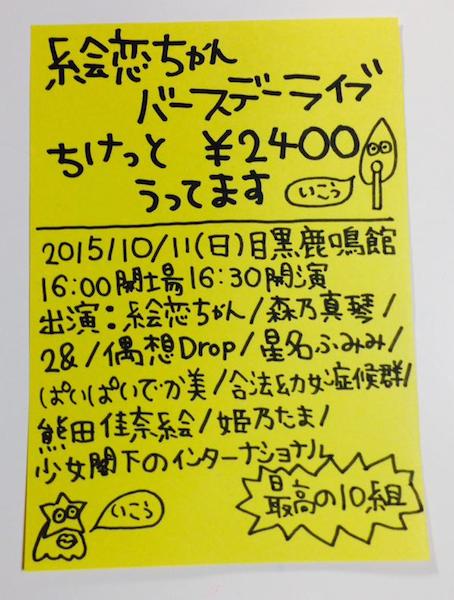 絵恋ちゃん
バースデーライブ
ちけっと ¥2400
うってます
いこう
2015/10/11(日)目黒鹿鳴館
16:00開場16:30開演
出演:絵恋ちゃん/森乃真琴/
2&/偶想Drop/星名ふみみ/
ぱいぱいでか美/合法幼女症候群/
熊田佳奈絵/姫乃たま/
少女閣下のインターナショナル
いこう
最高の10組